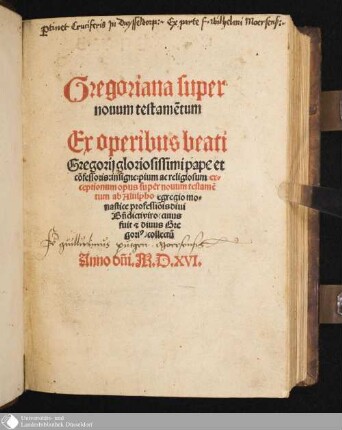 Ptinet Cruciferis In Duysseldorp: Ex parte f. Wilhelmi Moersens:
Gregoriana super
nouum testamẽtum
Ex operibus beati
Gregorij gloriosissimi pape et
cõfessoris: insigne: pium ac religiosum ex-
ceptionum opus super nouum testamẽ
tum ab Alulpho egregio mo-
nastice professiõis diui
Bñdicti viro: cuius
fuit & diuus Gre
gori⁹: collectũ
fr guilhelmus Moersensis
Anno dñi. M.D.XVI.
Universitäts- und
Landesbibliothek Düsseldorf